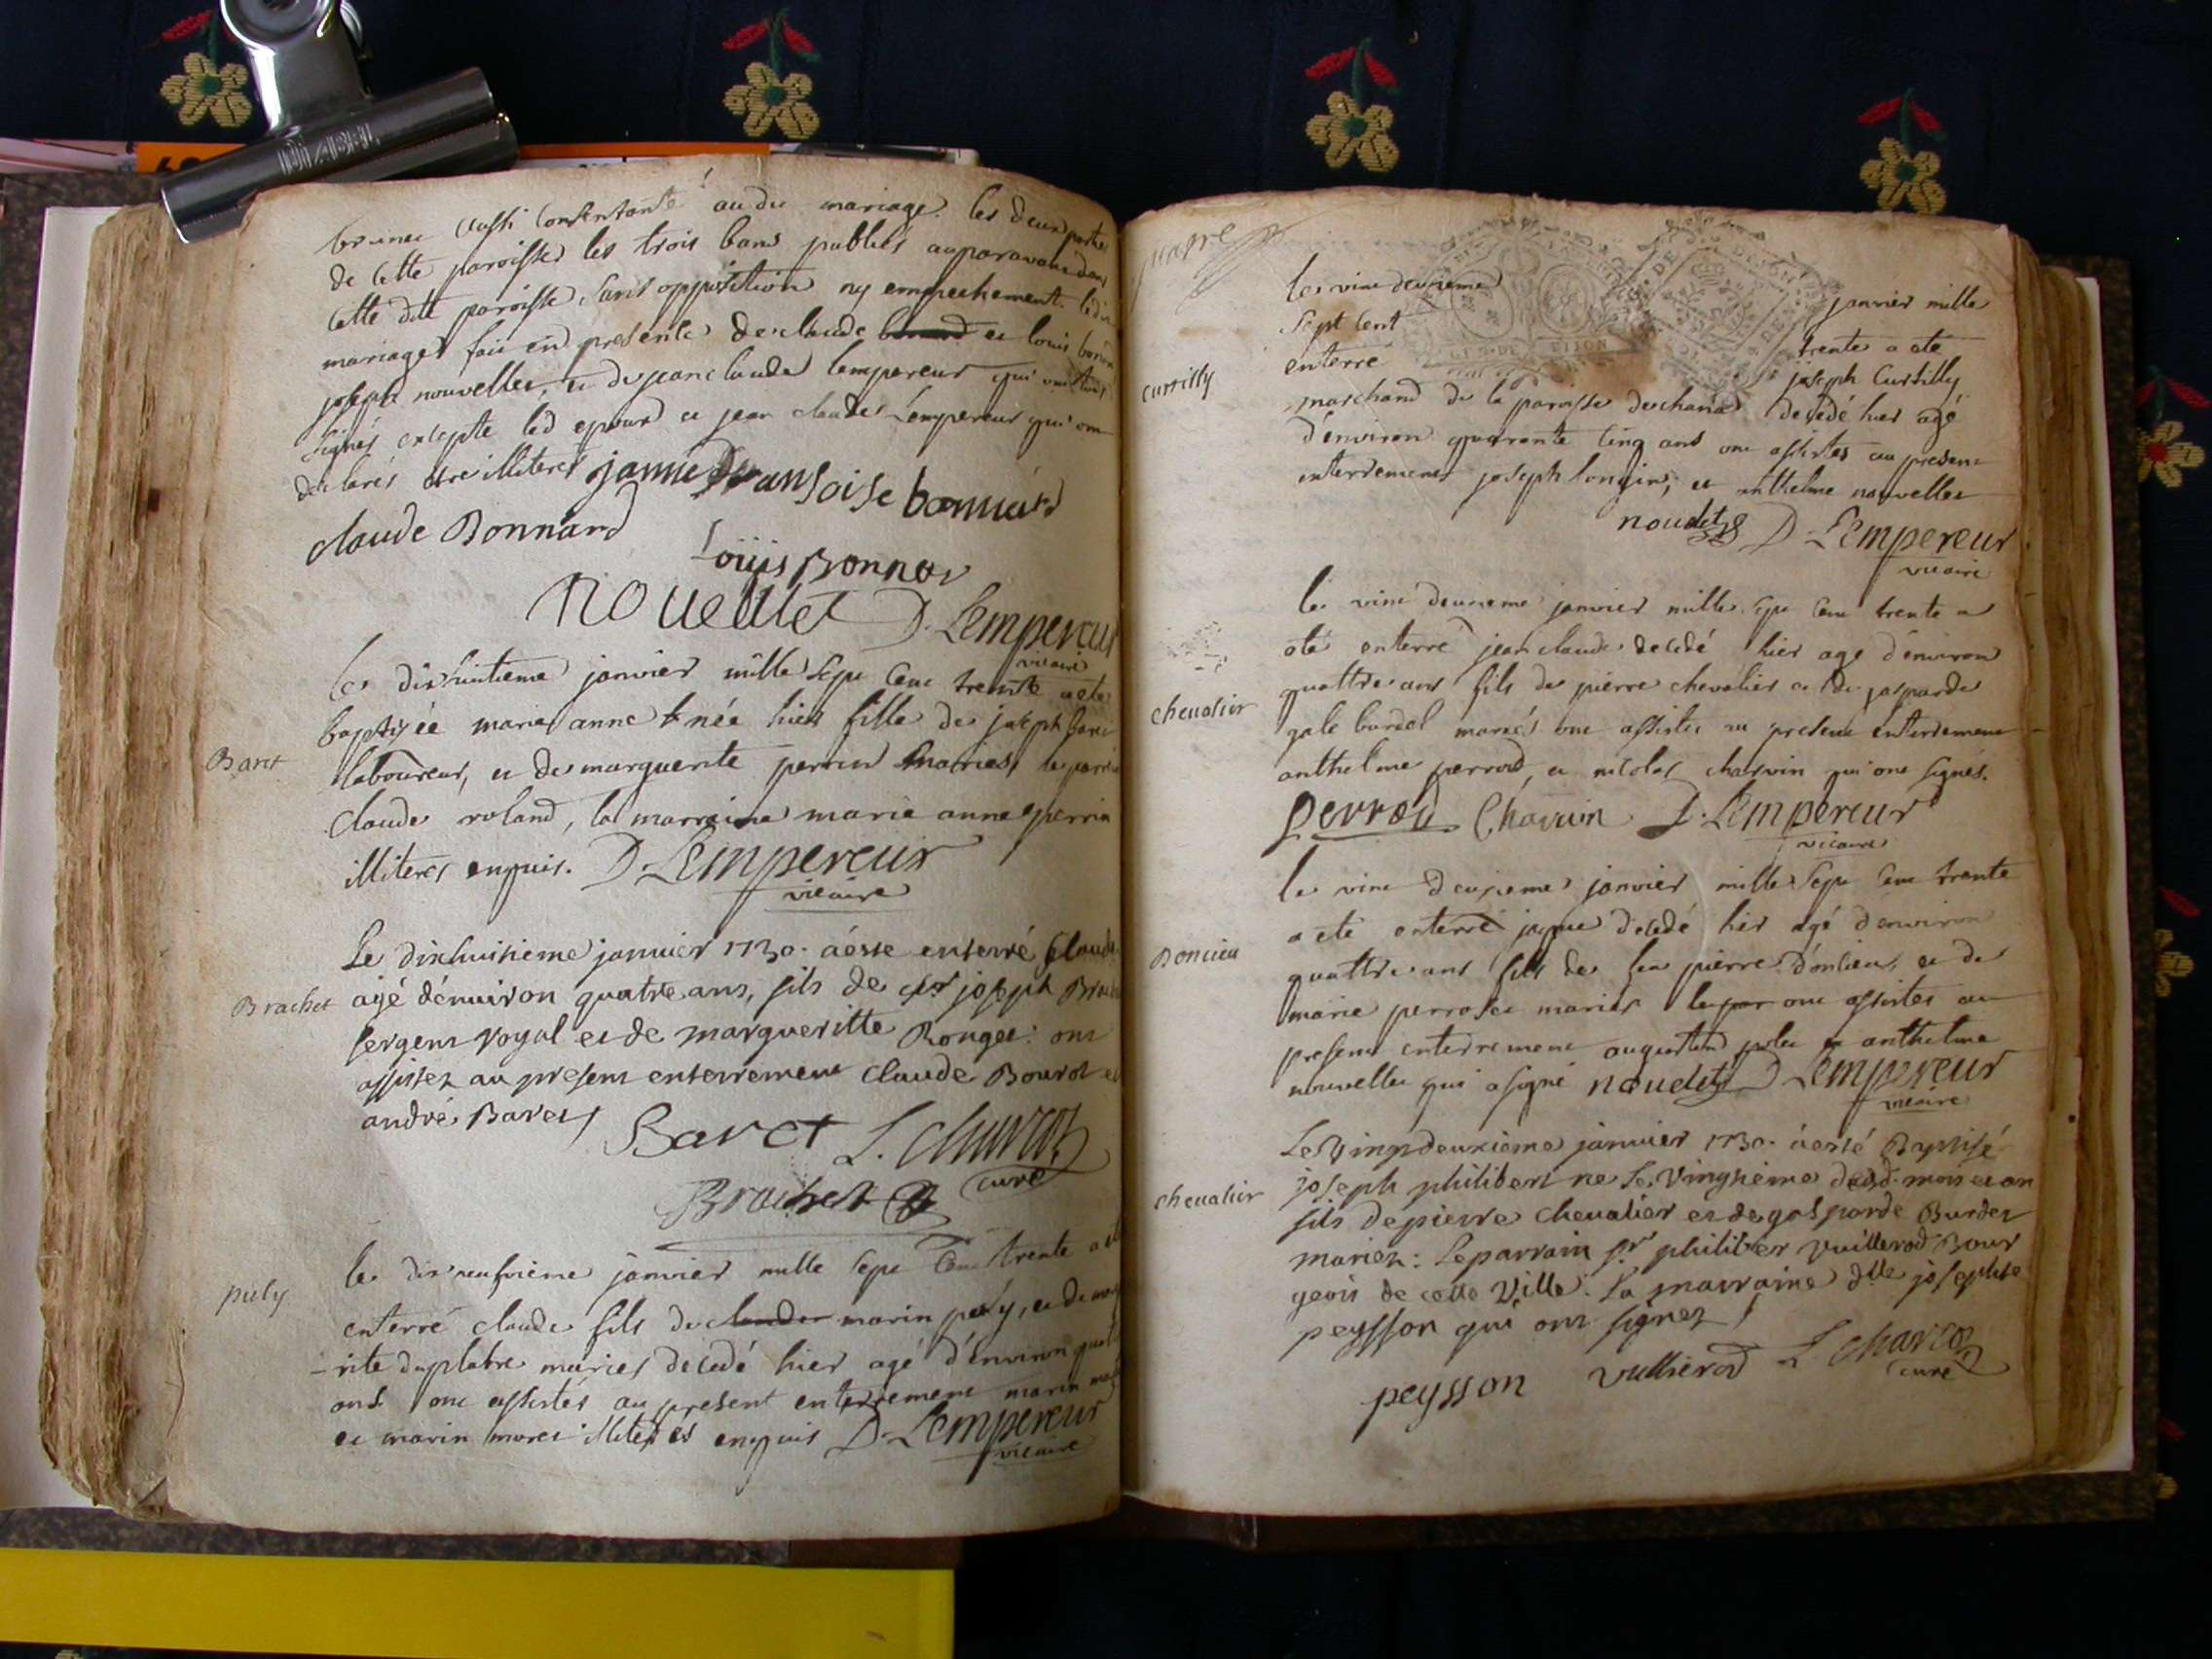 DIABEL
brunei aussi consentante audit mariage. les deux parties
de cette paroisse les trois bans publiés auparavant dans
cette ditte paroisse sans opposition ny empechement. ledit
mariage fait en presence de claude et louis
joseph nouvellet, et de jean claude lempereur qui ont tous
signés excepte led epoux et jean claude Lempereur qui ont
declarés etre illiteres janne fransoise bonnard
claude Bonnard
Louis Bonnar
Nouellet D. Lempereur
vicaire
Le dixhuitieme janvier mille sept cent trente a ete
baptisée marie anne née hier fille de joseph baret
Baret
laboureur, et de marguerite perrin mariés, le parrain
claude roland, la marraine marie anne perrin
illiteres enquis. D. Lempereur
vicaire
Le dixhuitieme janvier 1730. a esté enterré Claude
Brachet
agé denviron quatre ans, fils de joseph
sergent royal et de margueritte Rouget: ont
assistez au present enterrement claude Bourot et
andré Baret
Baret L. Charcot
curé
Brachet
le dixneufvieme janvier mille sept cent trente a été
puly
enterré claude fils de marin puly, et de
-rite duplatre mariés decedé hier agé d'environ
ans. ont assistés au present enterrement marin
et marin morel illiterés enquis D. Lempereur
vicaire
le vint deuxieme janvier mille
sept cent trente a été
enterré joseph Curtilly
curtilly
marchand de la paroisse decedé hier agé
d'environ quarante cinq ans ont assistés au present
enterrement joseph longin, et anthelme nouvellet
D. Lempereur
vicaire
le vint deuxieme janvier mille sept cent trente a
été enterré jean claude decedé hier age d'environ
quattre ans fils de pierre chevalier et de gasparde
chevalier
burdel mariés ont assistés au present enterrement
anthelme perrod, et nicolas charvin qui ont signés.
perrod Charvin D. Lempereur
vicaire
le vint deuxieme janvier mille sept cent trente
a été enterré jaque decedé hier agé d'environ
Doncieu
quattre ans fils de feu pierre donlieu, et de
marie mariés ont assistés au
present enterrement augustin et anthelme
nouvellet qui a signé D. Lempereur
vicaire
Le vingtdeuxieme janvier 1730. a esté Baptisé
joseph philibert né le vingtieme dud. mois et an
chevalier
fils de pierre chevalier et de gasparde Burdet
mariez: Le parrain sr. philibert Vuillerod Bour
geois de cette Ville. La marraine dlle josephte
peysson qui ont signez
peysson vullierod L Charcot
curé